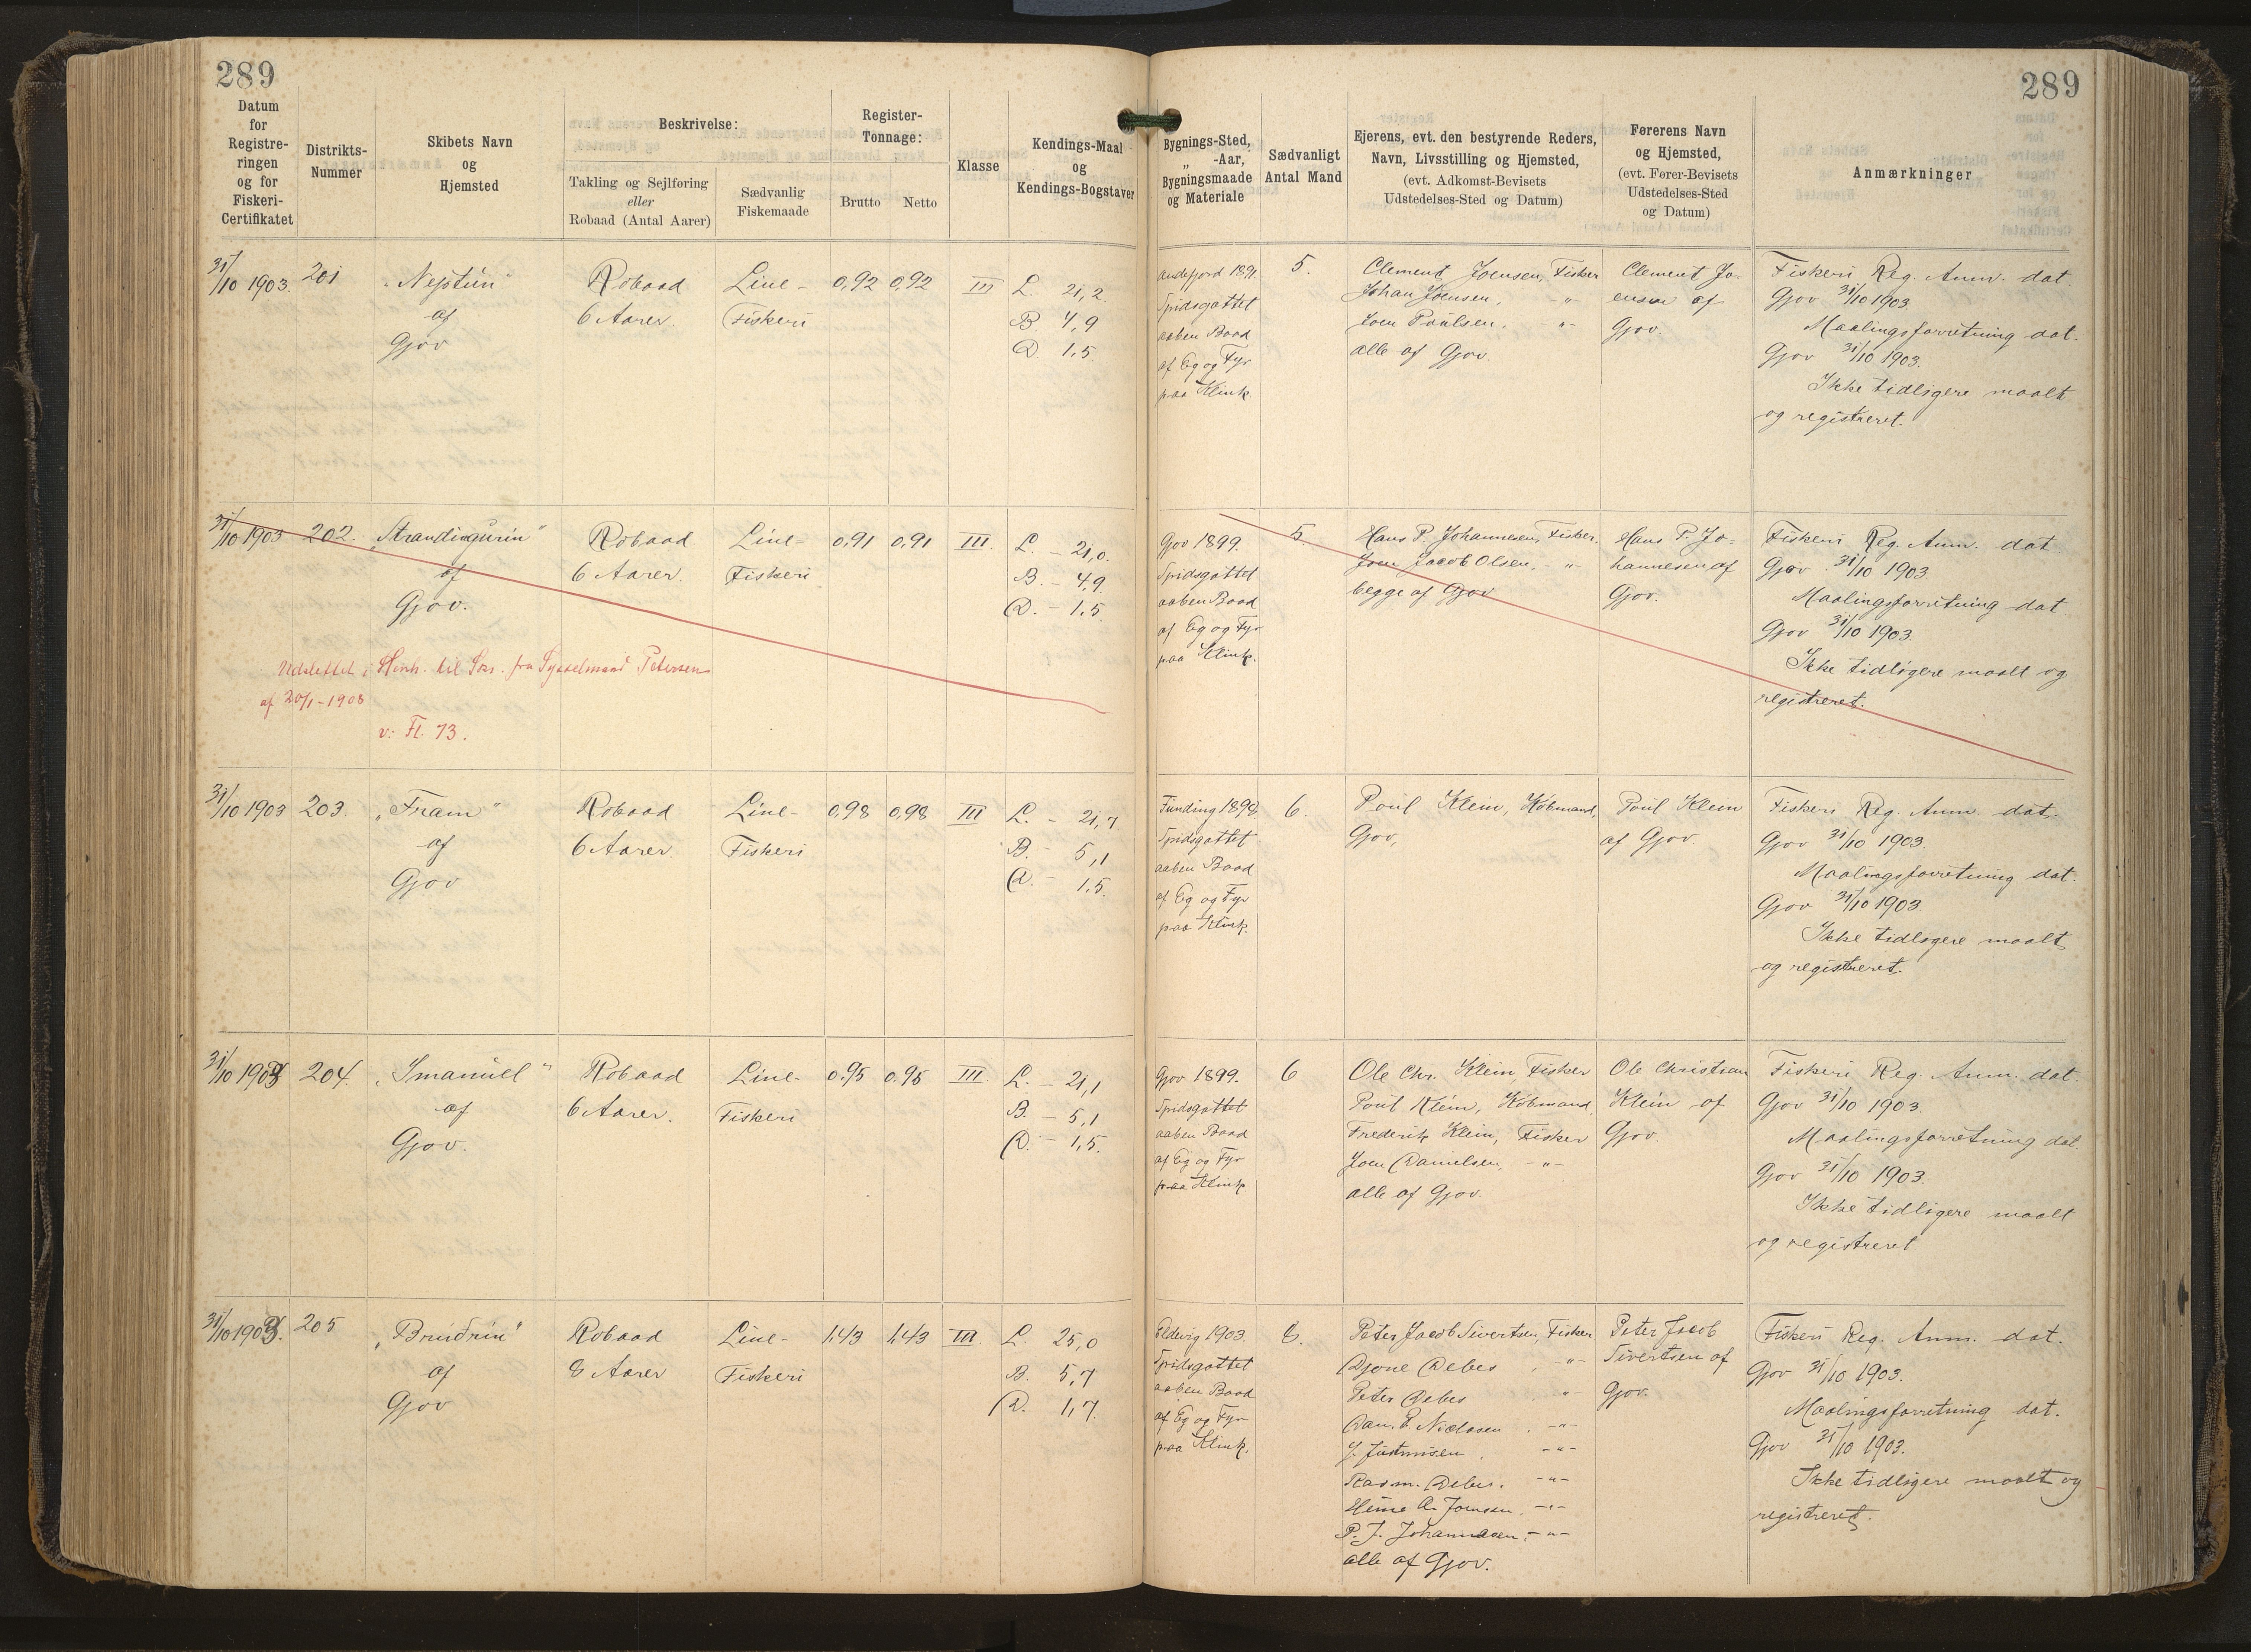 289
289
Datum
for
Registre-
ringen
og for
Fiskeri-
Certifikatet
Distrikts-
Nummer
Skibets Navn
og
Hjemsted
Beskrivelse:
Takling og Sejlføring
eller
Robaad (Antal Aarer)
Sædvanlig
Fiskemaade
Register-
Tonnage:
Brutto
Netto
Klasse
Kendings-Maal
og
Kendings-Bogstaver
Bygnings-Sted,
„ -Aar,
Bygningsmaade
og Materiale
Sædvanligt
Antal Mand
Ejerens, evt. den bestyrende Reders,
Navn, Livsstilling og Hjemsted,
(evt. Adkomst-Bevisets
Udstedelses-Sted og Datum)
Førerens Navn
og Hjemsted,
(evt. Fører-Bevisets
Udstedelses-Sted
og Datum)
Anmærkninger
31/10 1903.
201
„Neptun"
af
Gjov
Robaad
6 Aarer.
Line-
Fiskeri
0,92
0,92
III
L. 21,2.
B. 4,9
D. 1,5.
Andefjord 1891.
Spidsgattet
aaben Baad
af Eg og Fyr
paa Klink.
5.
Clement Joensen, Fisker
Johan Joensen, -"-
Joen Poulsen, -"-
alle af Gjov.
Clement Jo-
ensen af
Gjov.
Fiskeri Reg. Anm. dat.
Gjov 31/10 1903.
Maalingsforretning dat.
Gjov 31/10 1903.
Ikke tidligere maalt
og registreret.
31/10 1903
202.
„Strandingurin"
af
Gjov.
Robaad
6 Aarer.
Line-
Fiskeri
0,91
0,91
III.
L. - 21,0.
B. - 4,9.
D. - 1,5.
Udslettet i Henh. til Skr. fra Sysselmand Petersen
af 20/1-1908
v: Fl. 73.
Gjov 1899.
Spidsgattet
aaben Baad
af Eg og Fyr
paa Klink.
5.
Hans P. Johannesen, Fisker.
Joen Jacob Olsen, -"-
begge af Gjov
Hans P. Jo-
hannesen af
Gjov.
Fiskeri Reg. Anm. dat
Gjov. 31/10 1903.
Maalingsforretning dat
Gjov 31/10 1903.
Ikke tidligere maalt og
registreret.
31/10 1903
203.
„Fram"
af
Gjov
Robaad
6 Aarer.
Line-
Fiskeri
0,98
0,98
III
L. - 21,7
B. - 5,1
D. - 1,5.
Funding 1898.
Spidsgattet
aaben Baad
af Eg og Fyr
paa Klink.
6.
Poul Klein, Købmand,
Gjov,
Poul Klein
af Gjov.
Fiskeri Reg. Anm. dat.
Gjov 31/10 1903.
Maalingsforretning dat.
Gjov 31/10 1903
Ikke tidligere maalt
og registreret.
31/10 1903
204.
„Imanuel"
af
Gjov.
Robaad
6 Aarer.
Line-
Fiskeri
0,95
0,95
III.
L. - 21,1
B. - 5,1
D. - 1,5.
Gjov 1899.
Spidsgattet
aaben Baad
af Eg og Fyr
paa Klink
6
Ole Chr. Klein, Fisker
Poul Klein, Købmand,
Frederik Klein, Fisker
Joen Danielsen, -"-
alle af Gjov.
Ole Christian
Klein af
Gjov.
Fiskeri Reg. Anm. dat.
Gjov 31/10 1903.
Maalingsforretning dat.
Gjov 31/10 1903.
Ikke tidligere maalt
og registreret
31/10 1903.
205
„Bruðrin"
af
Gjov
Robaad
8 Aarer
Line-
Fiskeri
1,43
1,43
III.
L. 25,0
B. 5,7
D. 1,7.
Eldevig 1903.
Spidsgattet
aaben Baad
af Eg og Fyr
paa Klink.
8.
Peter Jacob Sivertsen, Fisker
Djone Debes, -"-
Peter Debes -"-
Dan. E. Niclasen, -"-
J. Justinisen, -"-
Rasm. Debes. -"-
Heine A. Joensen. -"-
P. J. Johannesen, -"-
alle af Gjov.
Peter Jacob
Sivertsen af
Gjov.
Fiskeri Reg. Anm. dat.
Gjov 31/10 1903.
Maalingsforretning dat.
Gjov 31/10 1903.
Ikke tidligere maalt og
registreret.